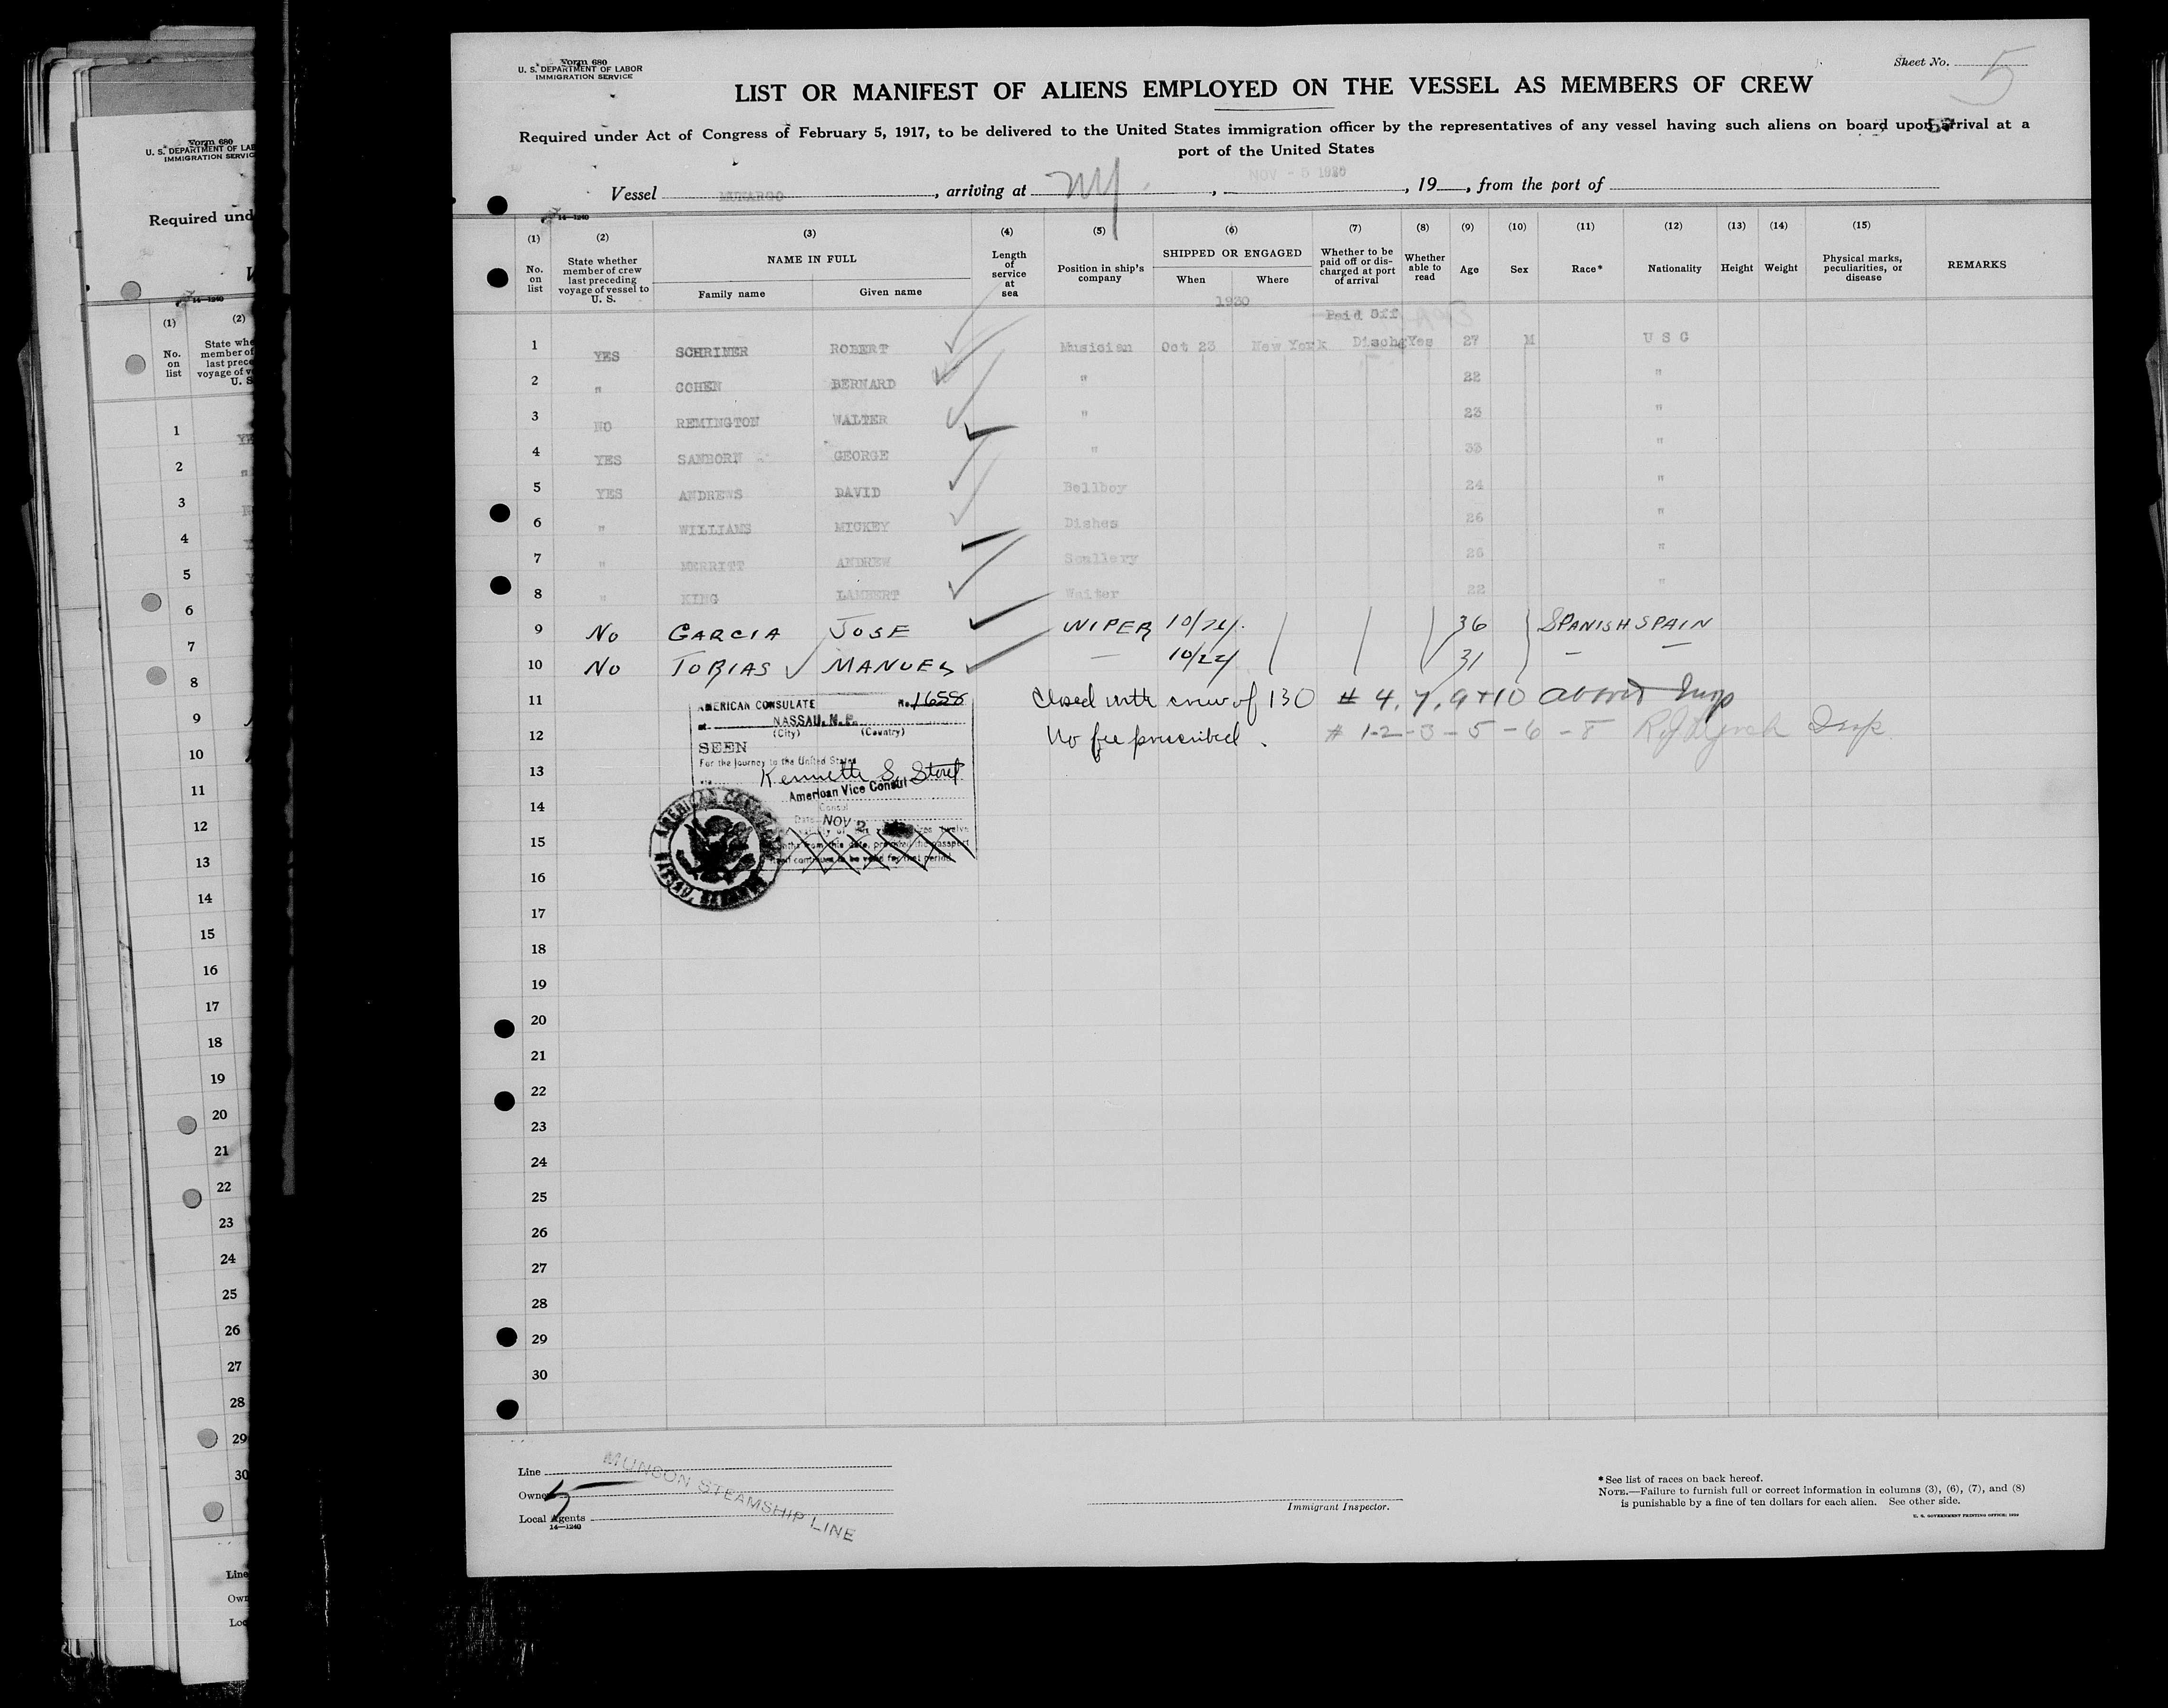 Form 680
U. S. DEPARTMENT OF LABOR
IMMIGRATION SERVICE
Sheet No. 5
LIST OR MANIFEST OF ALIENS EMPLOYED ON THE VESSEL AS MEMBERS OF CREW
Required under Act of Congress of February 5, 1917, to be delivered to the United States immigration officer by the representatives of any vessel having such aliens on board upon arrival at a
port of the United States
Vessel MUNARGO, arriving at NY, NOV - 5 1930, 19__, from the port of
14—1240
(1) No. on list
(2) State whether member of crew last preceding voyage of vessel to U. S.
(3) NAME IN FULL Family name Given name
(4) Length of service at sea
(5) Position in ship's company
(6) SHIPPED OR ENGAGED When Where
(7) Whether to be paid off or discharged at port of arrival
(8) Whether able to read
(9) Age
(10) Sex
(11) Race*
(12) Nationality
(13) Height
(14) Weight
(15) Physical marks, peculiarities, or disease
REMARKS
1930
Paid Off
1 YES SCHRINER ROBERT Musician Oct 23 New York Disch Yes 27 M U S C
2 " COHEN BERNARD " 22 "
3 NO REMINGTON WALTER " 23 "
4 YES SANBORN GEORGE " 33 "
5 YES ANDREWS DAVID Bellboy 24 "
6 " WILLIAMS MICKEY Dishes 26 "
7 " MERRITT ANDREW Scullery 26 "
8 " KING LAMBERT Waiter 22 "
9 No GARCIA JOSE WIPER 10/24 36 SPANISH SPAIN
10 No TOBIAS MANUEL — 10/24 31 — —
11 Closed with crew of 130 # 4, 7, 9 + 10 Insp
12 No fee prescribed. # 1-2-3-5-6-8 Insp
13
14
15
16
17
18
19
20
21
22
23
24
25
26
27
28
29
30
AMERICAN CONSULATE No. 1658
at NASSAU, N. P.
(City) (Country)
SEEN
For the journey to the United States
via
Kenneth S.
American Vice Consul
Consul
Date NOV 2
AMERICAN CONSULATE NASSAU, BAHAMAS
Line
Owner
Local Agents
14—1240
5
MUNSON STEAMSHIP LINE
Immigrant Inspector.
*See list of races on back hereof.
NOTE.—Failure to furnish full or correct information in columns (3), (6), (7), and (8)
is punishable by a fine of ten dollars for each alien. See other side.